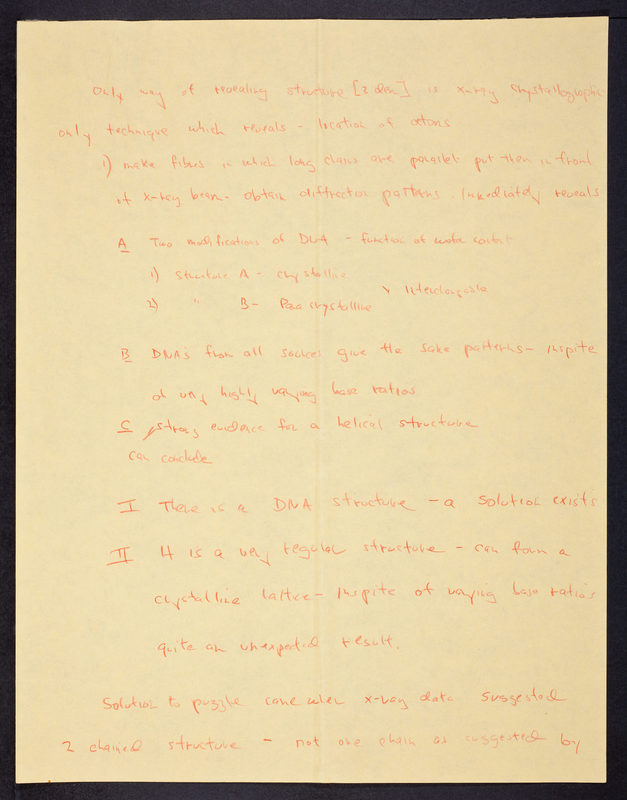 Only way of revealing structure [2 dem] is x-ray crystallographic
only technique which reveals - location of atoms
1) make fibres in which long chains are parallel put them in front
of x-ray beam - obtain diffraction patterns. Immediately reveals
A Two modifications of DNA - function of water content
1) Structure A - crystalline
> Interchangable
2) " B - Para crystalline
B DNA's from all sources give the same patterns - inspite
of very highly varying base ratios
C strong evidence for a helical structure
can conclude
I There is a DNA structure - a solution exists
II It is a very regular structure - can form a
crystalline lattice - inspite of varying base ratios
quite an unexpected result.
Solution to puzzle came when x-ray data suggested
2 chained structure - not one chain as suggested by